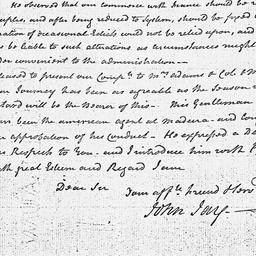 He observed that our commerce with France should be r
ples, and after being reduced to System, should be fixed
ation of occasional Edicts could not be relied upon, and
to be liable to such alterations as circumstances might
der convenient to the administration—
leased to present our Compts to Mrs Adams & Col. & M
r Journey has been as agreeable as the Season o
ard will be the Bearer of this— This Gentleman
as been the american agent at Madeira— and
r approbation of his conduct— He expressed a De
is Respects to You— and I introduce him with P
th great Esteem and Regard I am
Dear Sir
Your affte friend & Serv
John Jay.—